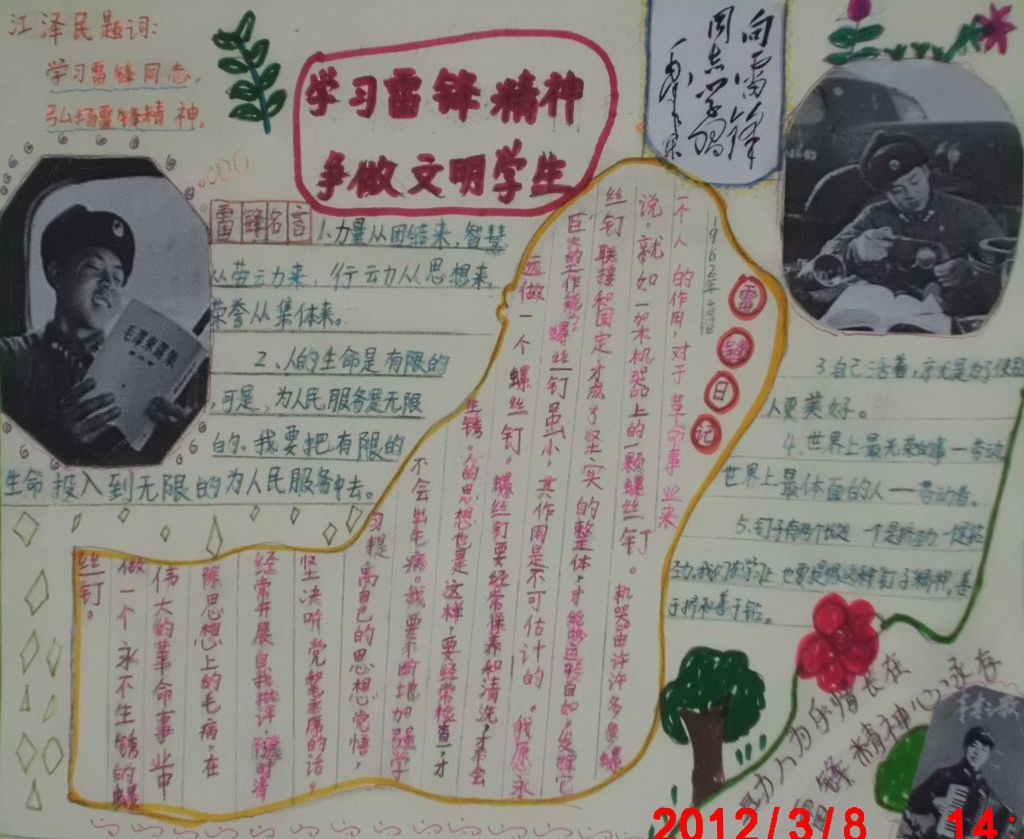 江泽民题词:
学习雷锋同志,
弘扬雷锋精神。
学习雷锋精神
争做文明学生
向雷锋
同志学习
毛泽东
雷锋名言
1.力量从团结来,智慧
从劳动力来,行动力从思想来,
荣誉从集体来。
2、人的生命是有限的
,可是,为人民服务是无限
的。我要把有限的
生命投入到无限的为人民服务中去。
毛泽东选集
雷锋日记
1962年
一个人的作用,对于革命事业来
说,就如一架机器上的一颗螺丝钉。机器由许许多多螺
丝钉联接和固定才成了坚实的整体,才能够运转自如,发挥它
巨大的工作能力。螺丝钉虽小,其作用是不可估计的。我愿永
远做一个螺丝钉。螺丝钉要经常保养和清洗,才不会
生锈。人的思想也是这样,要经常检查,才
不会出毛病。我要不断地加强学
习提高自己的思想觉悟,
坚决听党和毛主席的话。
经常开展自我批评,随时清
除思想上的毛病,在
伟大的革命事业中
做一个永不生锈的螺
丝钉。
3.自己活着,就是为了使别
人更美好。
4.世界上最光荣的事一劳动
世界上最体面的人一劳动者。
5.钉子有两个长处一个是挤劲一是钻
劲,我们在学习上也要提倡这种钉子精神,善
于挤和善于钻。
助人为乐常在
雷锋精神心永存
2012/3/8 14: